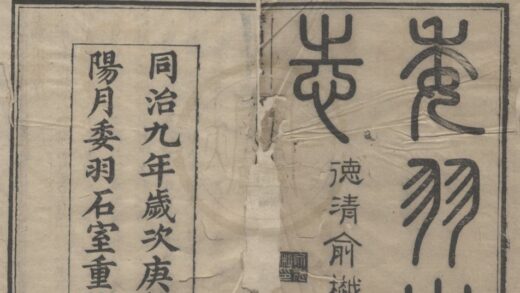 委羽山
志
德清俞樾
同治九年歲次庚
陽月委羽石室重